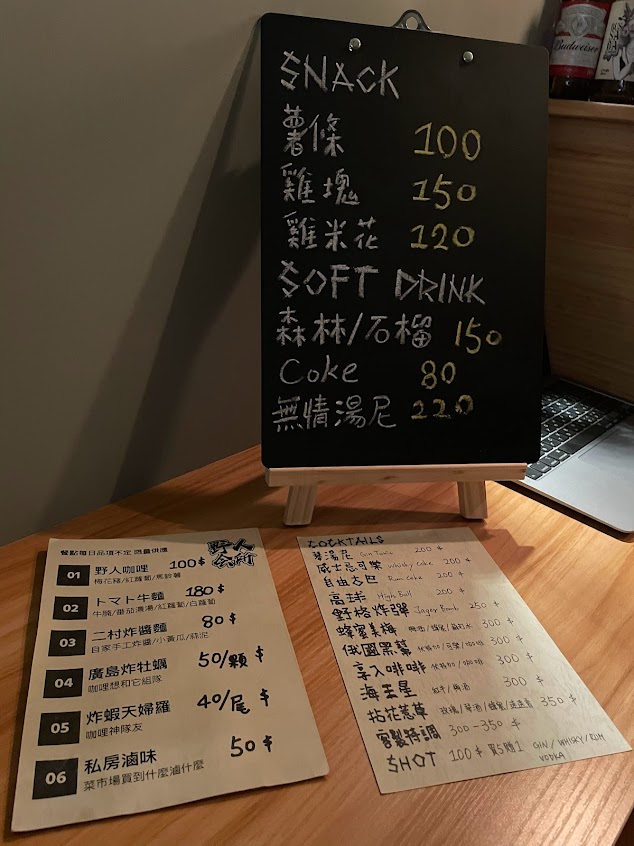 Budweiser
SNACK
薯條 100
雞塊 150
雞米花 120
SOFT DRINK
森林/石榴 150
Coke 80
無情湯尼 220
餐點每日品項不定 限量供應
野人
會所
01 野人咖哩 100$
梅花豬/紅蘿蔔/馬鈴薯
02 トマト牛麵 180$
牛腩/番茄濃湯/紅蘿蔔/白蘿蔔
03 二村炸醬麵 80$
自家手工炸醬/小黃瓜/蒜泥
04 廣島炸牡蠣 50/顆 $
咖哩想和它組隊
05 炸蝦天婦羅 40/尾 $
咖哩神隊友
06 私房滷味 50$
菜市場買到什麼滷什麼
COCKTAILS
琴湯尼 Gin Tonic 200 $
威士忌可樂 Whisky Coke 200 $
自由古巴 Rum Coke 200 $
高球 High Ball 200 $
野格炸彈 Jager Bomb 250 $
蜂蜜美梅 梅酒/蜂蜜/蘇打水 300 $
俄國黑幕 伏特加/可樂/咖啡 300 $
享入啡啡 伏特加/奶酒/咖啡 300 $
海王星 紅牛/梅酒 300 $
拈花惹草 350 $
客製特調 300-350 $
SHOT 100$ 買5贈1 GIN/WHISKY/RUM
VODKA